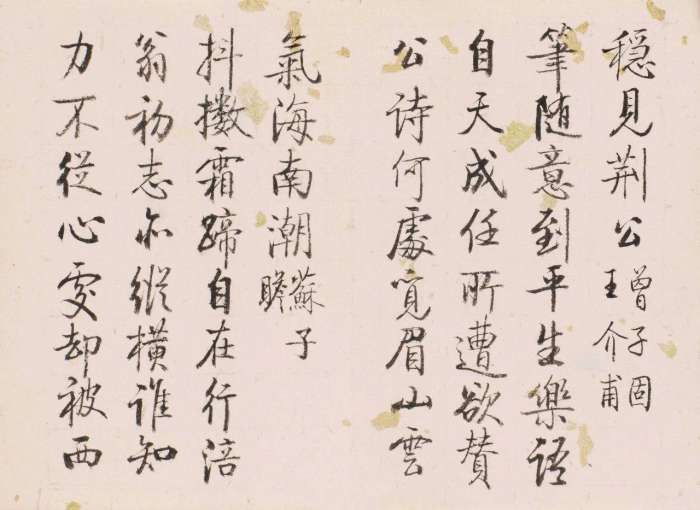 穩見荆公曾子固
王介甫
筆随意到平生樂語
自天成任所遭欲賛
公詩何處覓眉山雲
氣海南潮蘇子
瞻
抖擻霜蹄自在行涪
翁初志亦縱橫誰知
力不從心處却被西